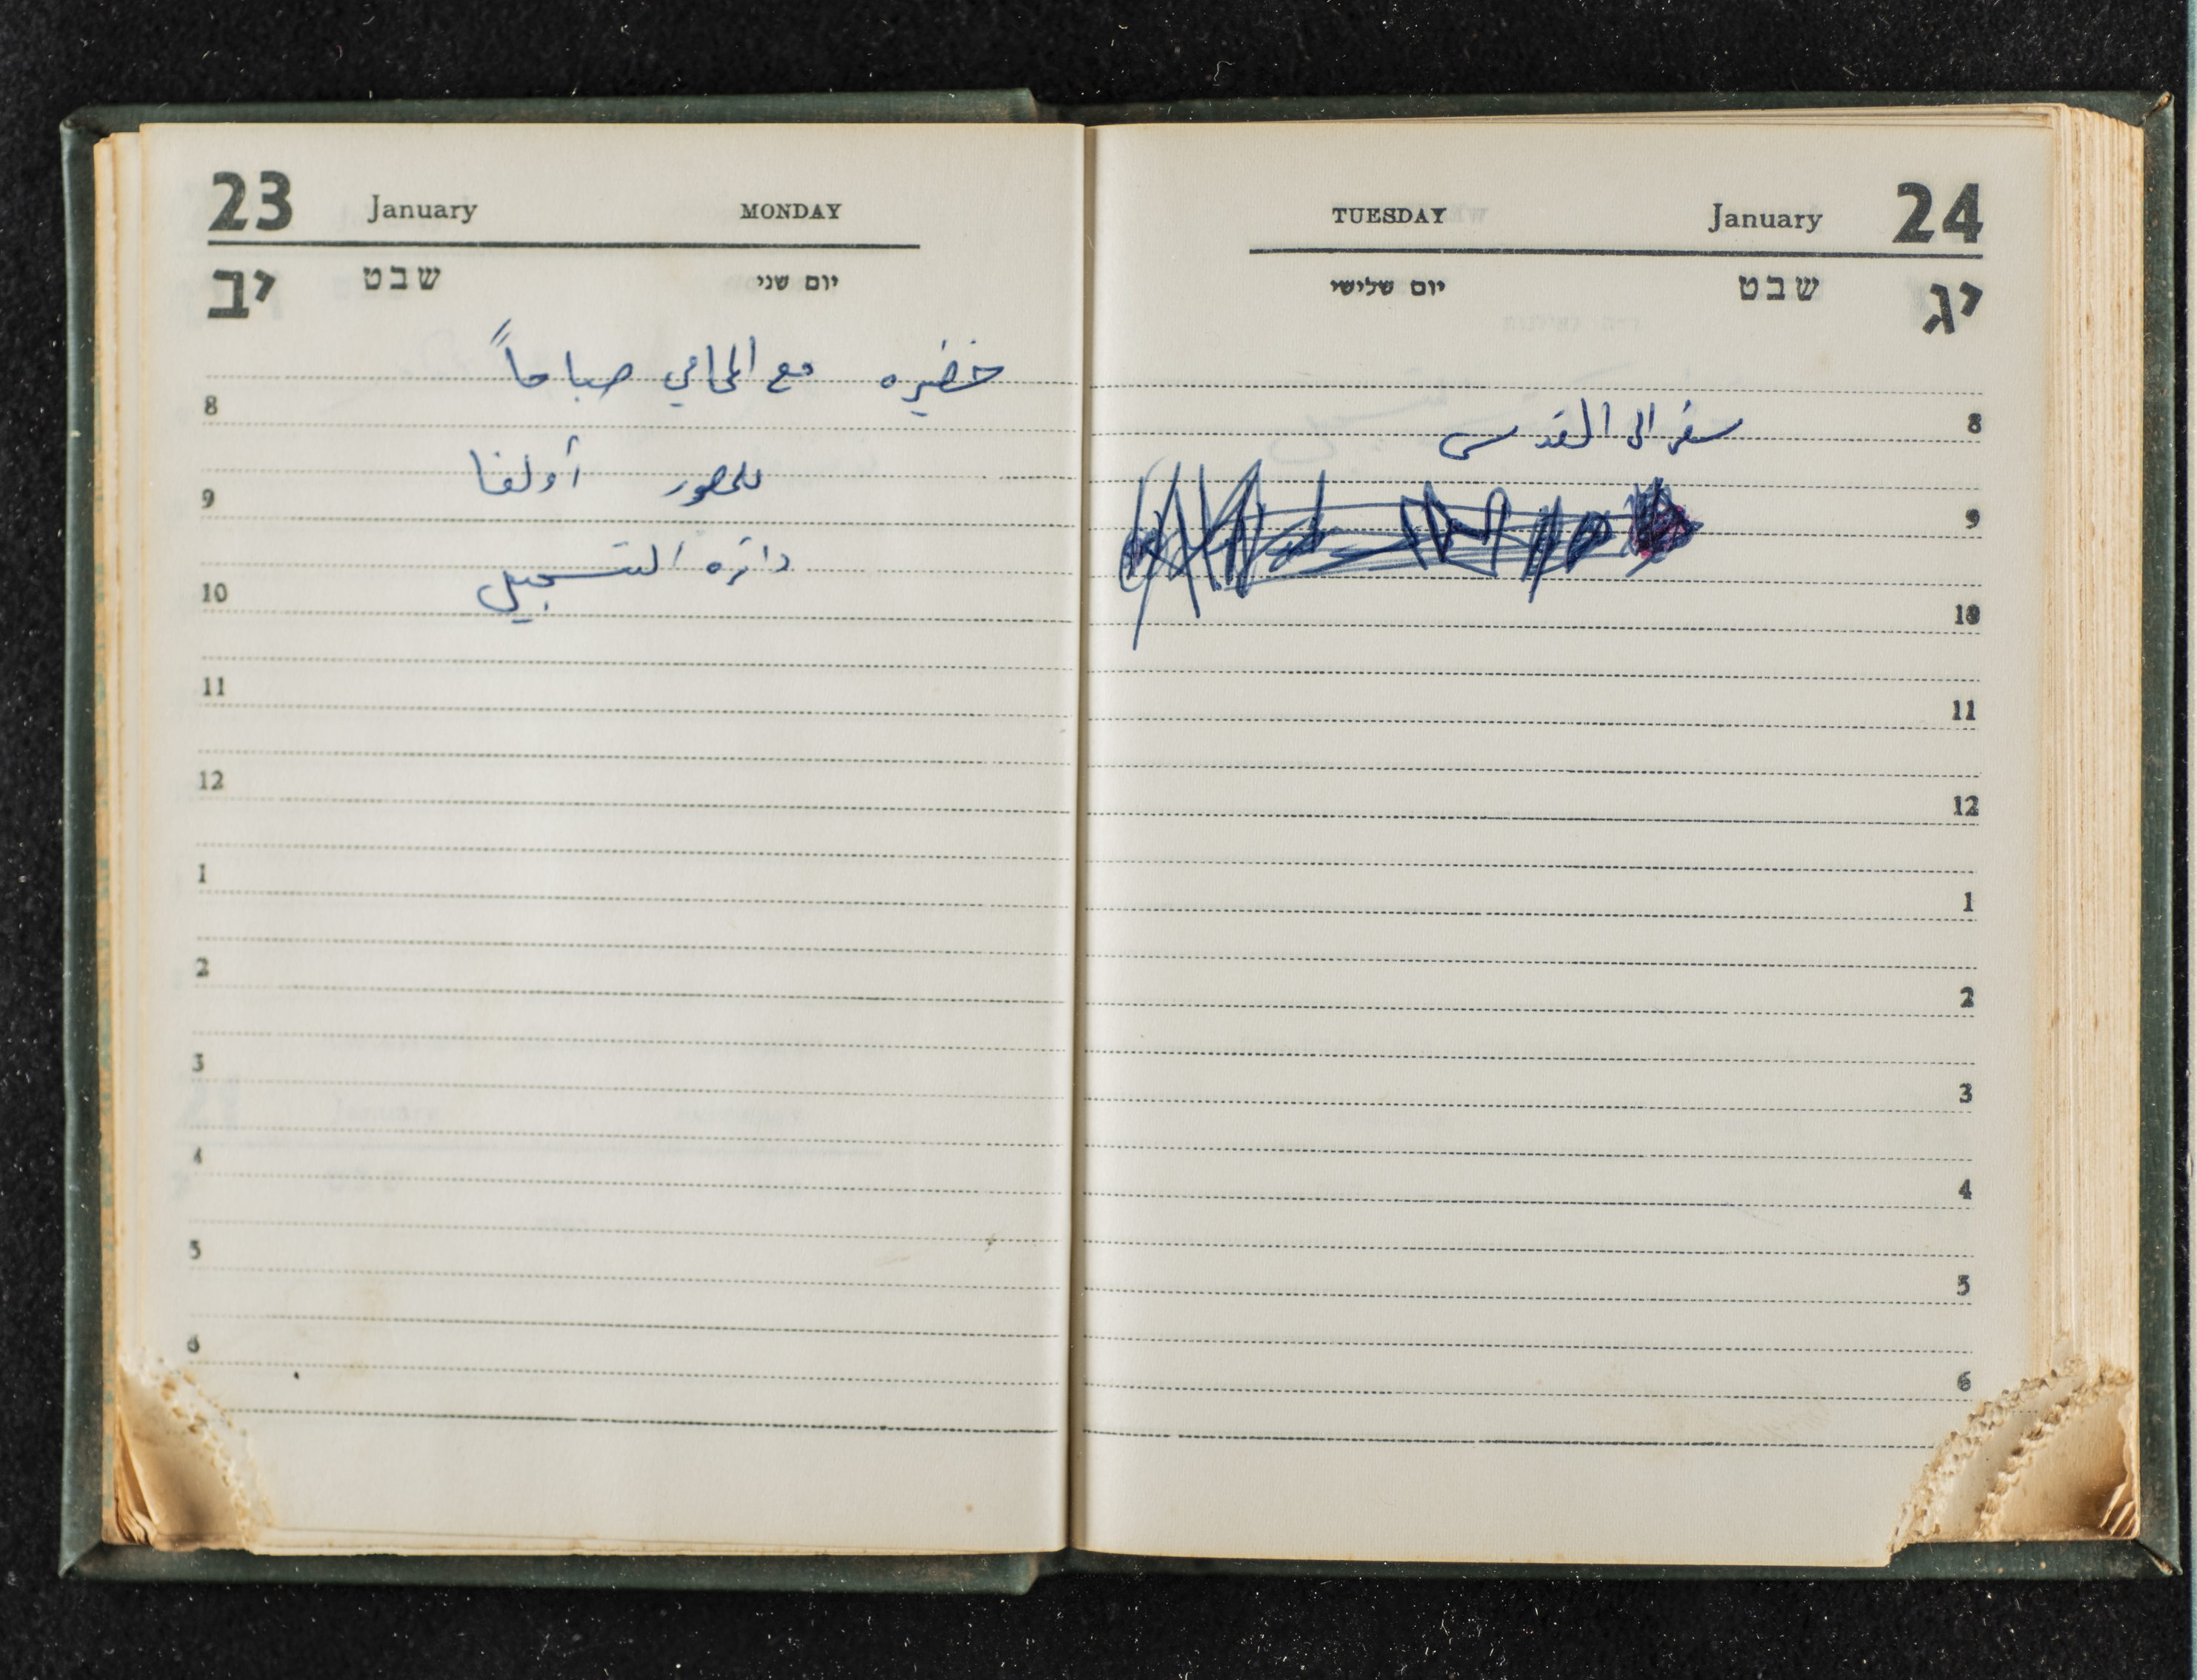 23 January MONDAY
יב שבט יום שני
خضيره مع المحامي صباحاً
8
للحضور أولغا
9
دائره التسجيل
10
11
12
1
2
3
4
5
6
TUESDAY January 24
יום שלישי שבט יג
سفر الى القدس
8
9
10
11
12
1
2
3
4
5
6